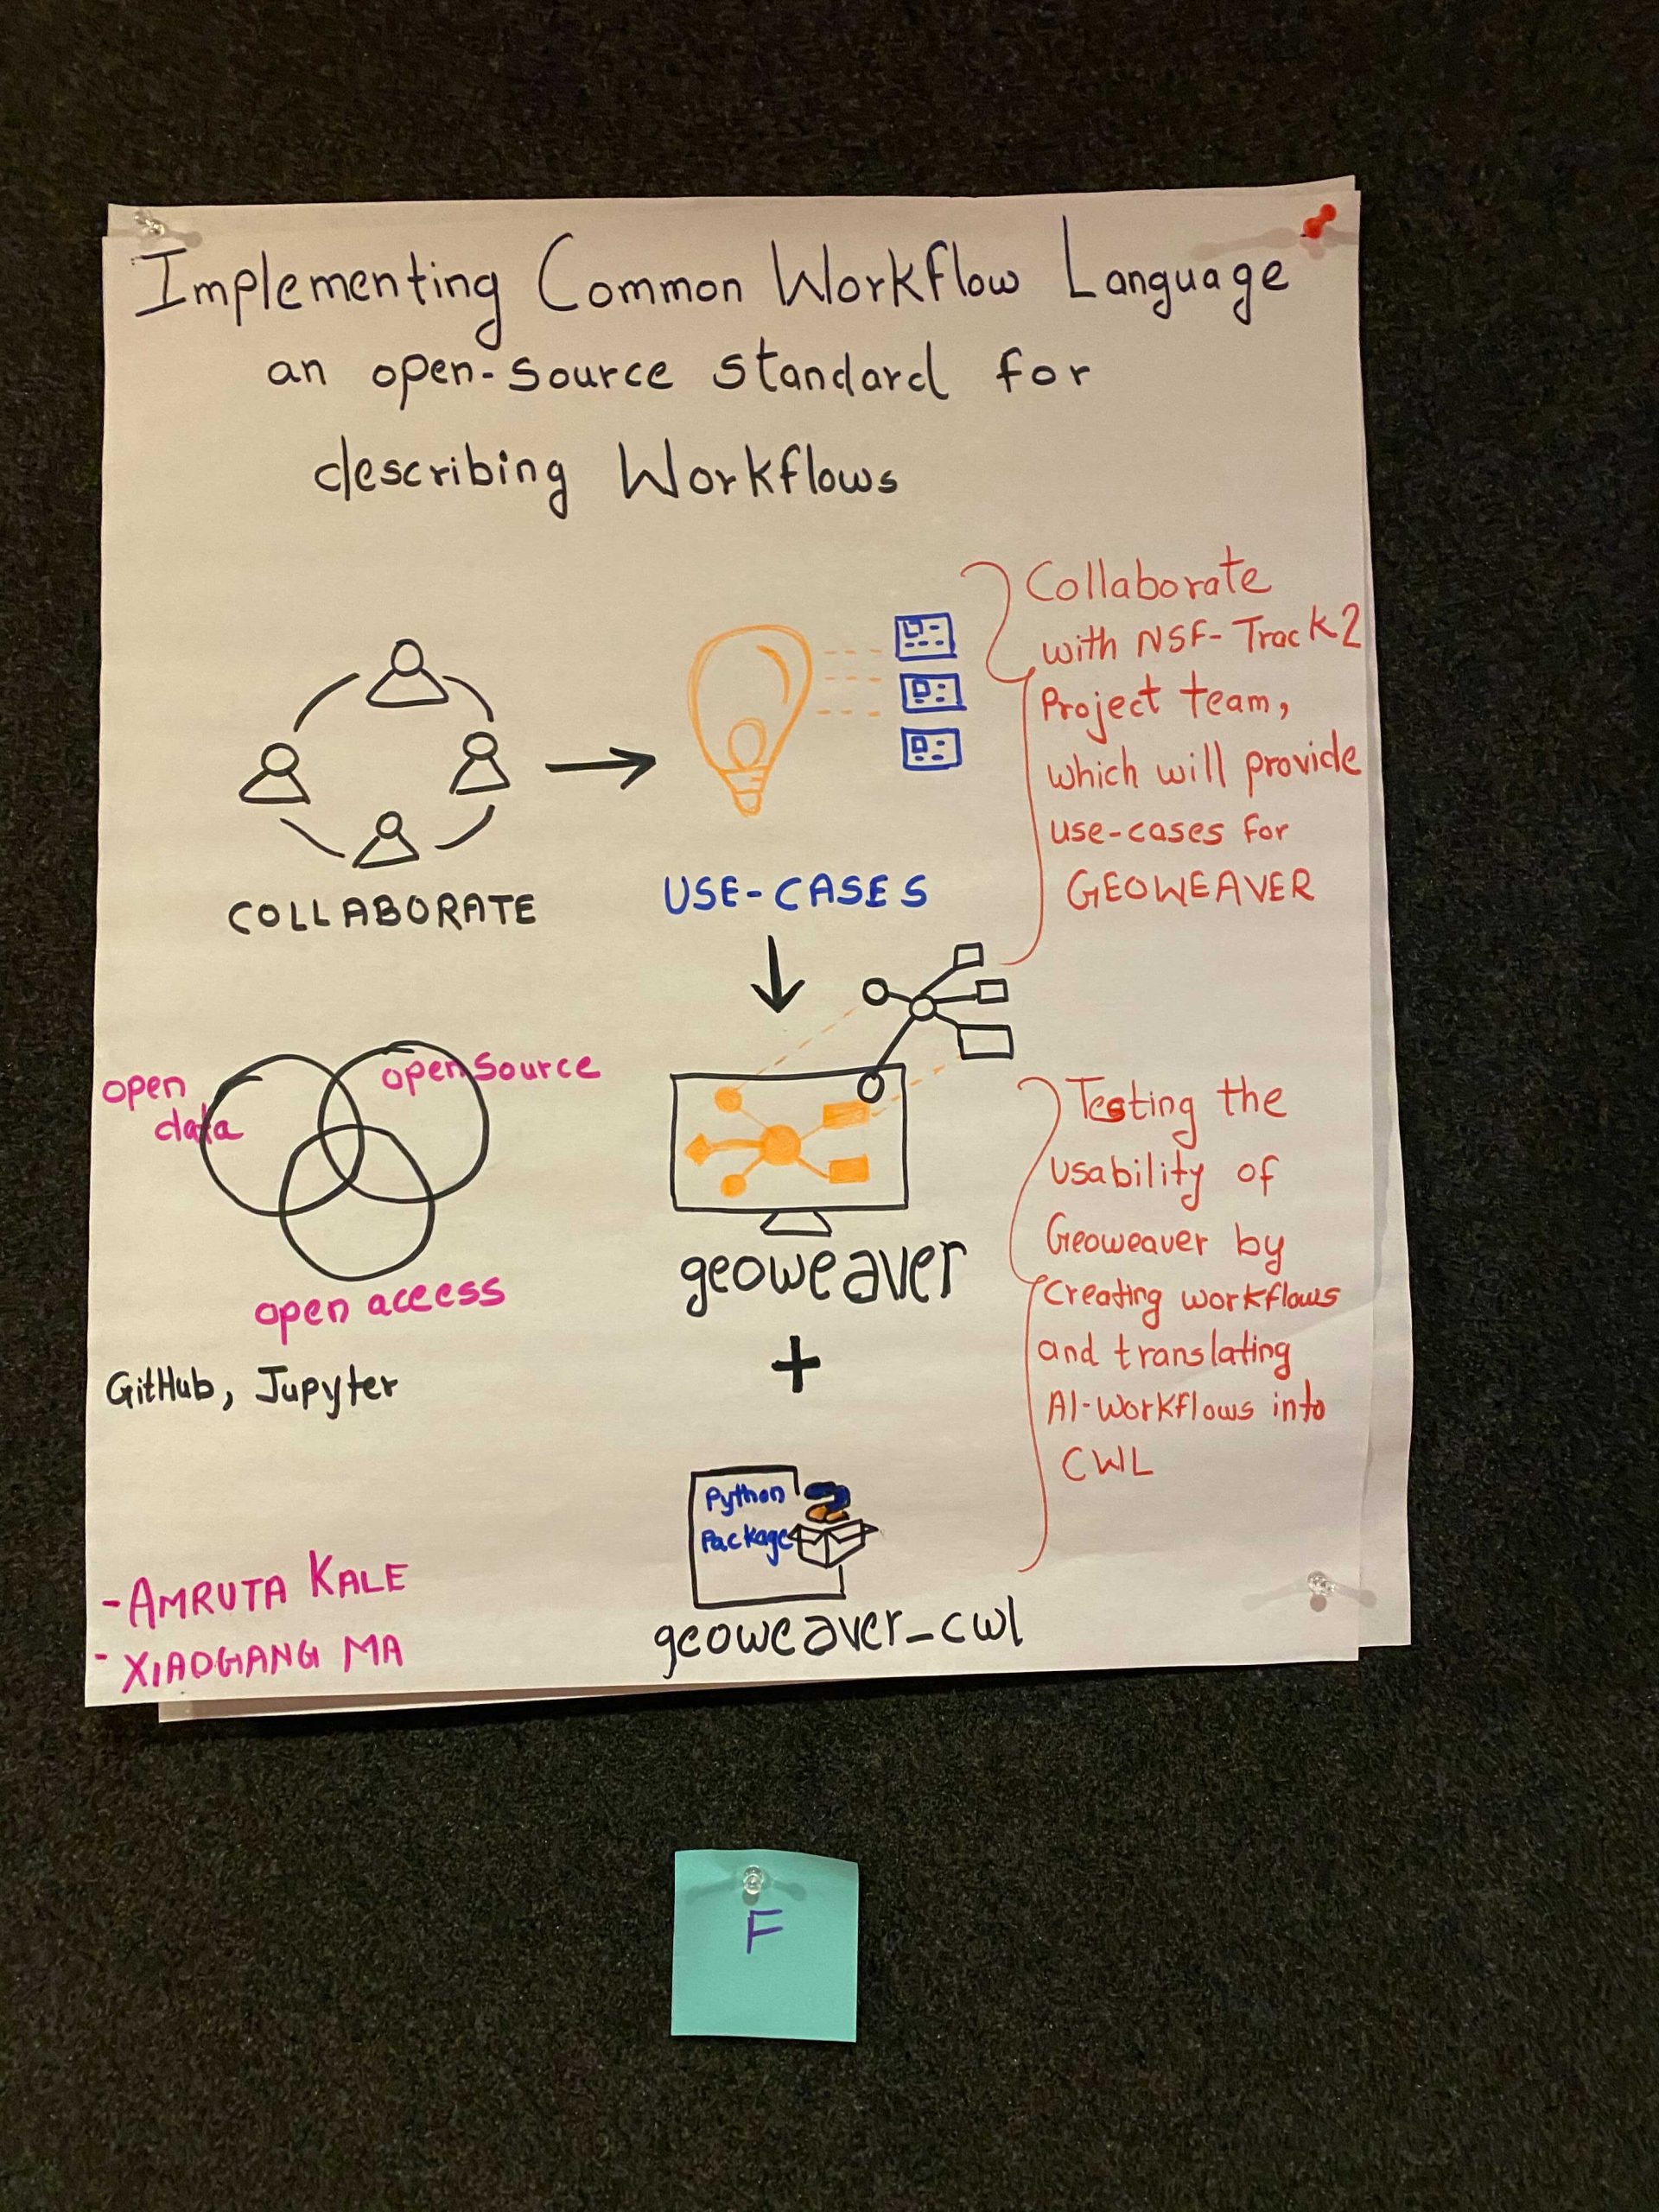 Implementing Common Workflow Language
an open-source standard for
describing Workflows
COLLABORATE
USE-CASES
Collaborate
with NSF-Track2
Project team,
which will provide
use-cases for
GEOWEAVER
open
data
open source
open access
GitHub, Jupyter
geoweaver
+
Python
Package
geoweaver_cwl
Testing the
usability of
Geoweaver by
Creating workflows
and translating
AI-Workflows into
CWL
-AMRUTA KALE
-XIAOGANG MA
F